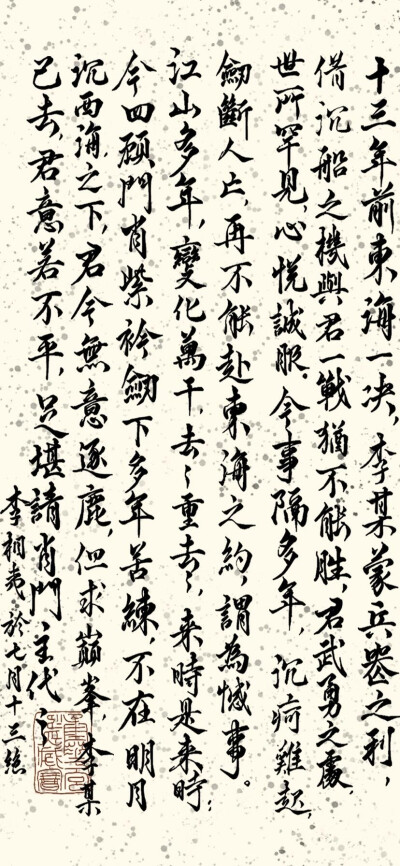 十三年前東海一决，李某蒙兵器之利，
借沉船之機與君一戰猶不能胜，君武勇之處，
世所罕見，心悦誠服。今事隔多年，沉疴難起，
劒斷人亡，再不能赴東海之約，謂為憾事。
江山多年，變化萬千，去〻重去〻，来時是来時；
今四顾門肖紫衿劒下多年苦練，不在明月
沉西海之下，君今無意逐鹿，但求巔峯，李某
已去，君意若不平，足堪請肖門主代之
李相夷於七月十三絶